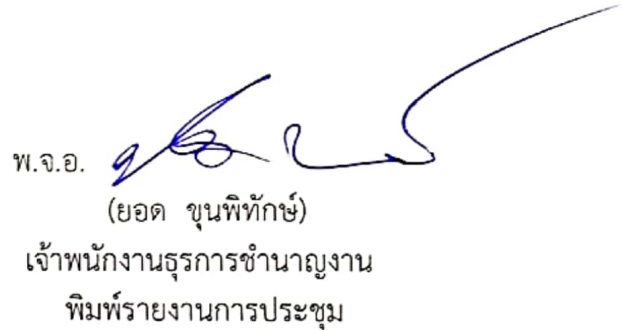 พ.จ.อ.
(ยอด ขุนพิทักษ์)
เจ้าพนักงานธุรการชำนาญงาน
พิมพ์รายงานการประชุม